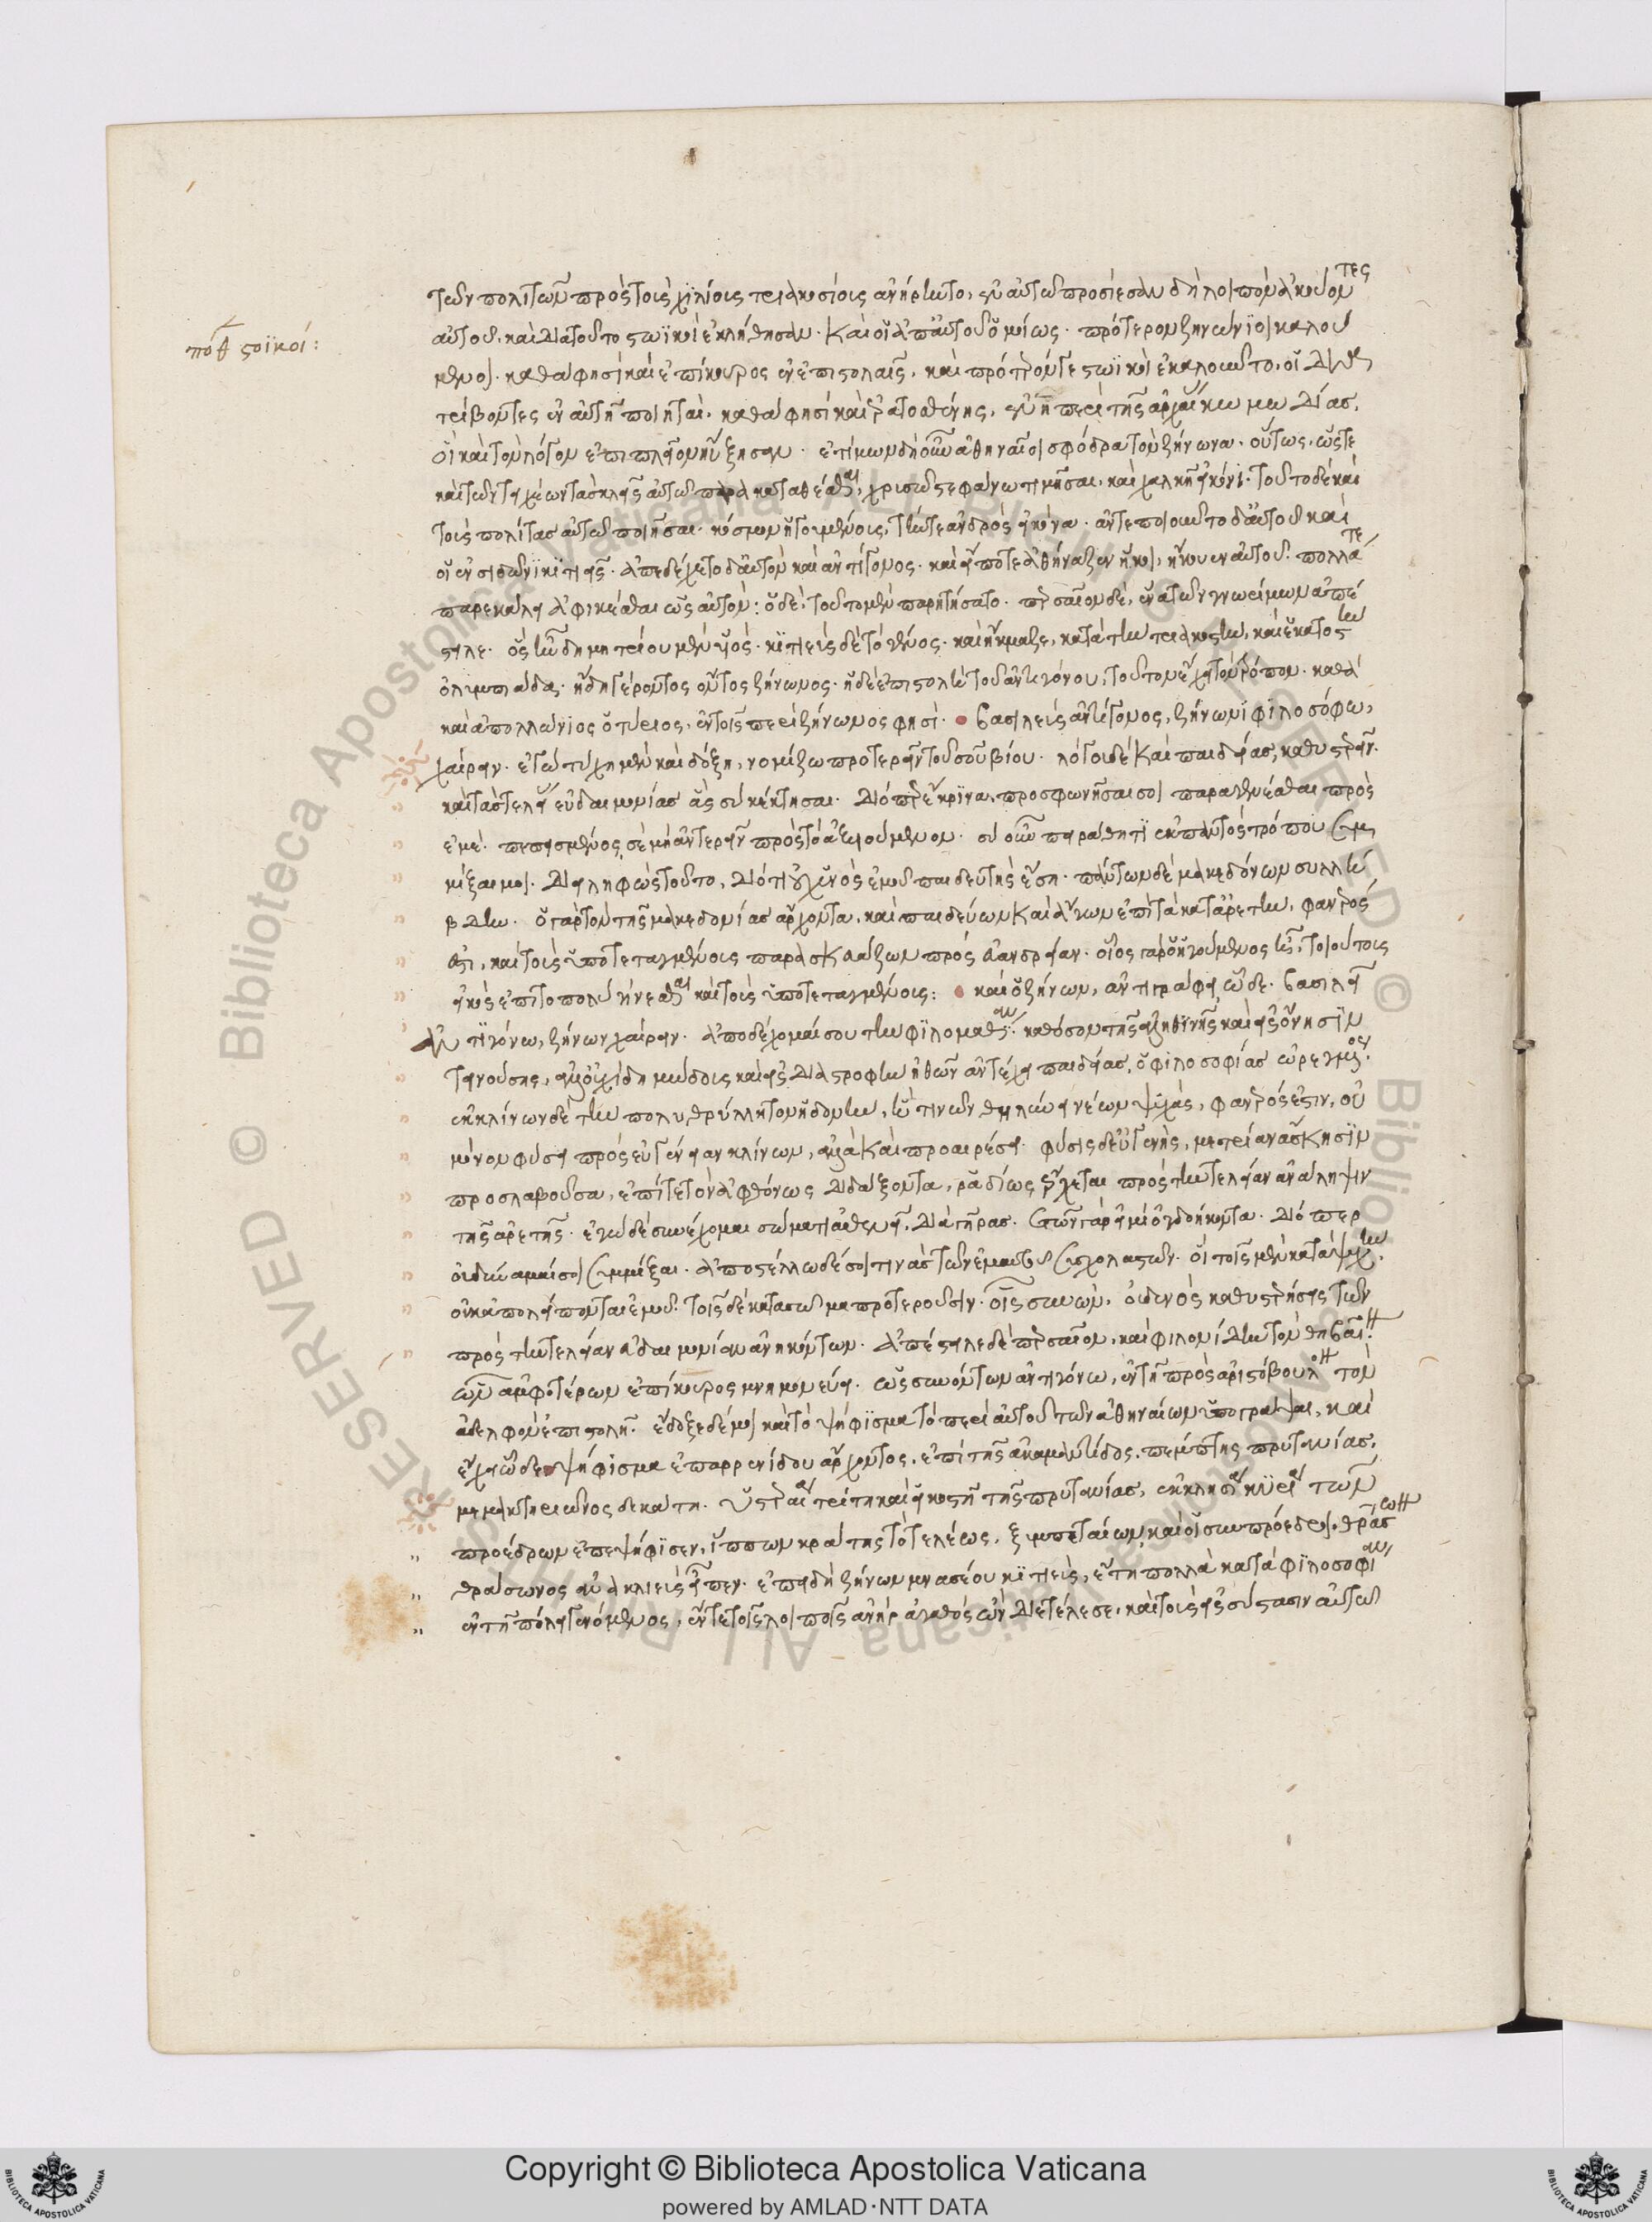 ποθ(εν) στοϊκοί:
τῶν πολιτῶν πρὸς τοῖς χιλίοις τριακοσίοις ἀνήρηντο, ἐν αὐτῷ προσίεσαν δὴ λοιπὸν ἀκούοντες
αὐτοῦ. καὶ διὰ τοῦτο στωϊκοὶ ἐκλήθησαν. καὶ οἱ ἀπ' αὐτοῦ ὁμοίως. πρότερον ζηνώνιοι καλού
μενοι. καθά φησι καὶ ἐπίκουρος ἐν ἐπιστολαῖς. καὶ πρότερόν τε στωϊκοὶ ἐκαλοῦντο, οἱ δια
τρίβοντες ἐν αὐτῇ ποιηταί. καθά φησι καὶ ἐρατοσθένης, ἐν η περὶ τῆς ἀρχαίας κωμωδίας.
οἳ καὶ τὸν λόγον ἐπιπλεῖον ηὔξησαν. ἐτίμων δὴ οὖν ἀθηναῖοι σφόδρα τὸν ζήνωνα. οὕτως, ὥστε
καὶ τῶν τειχέων τὰς κλεῖς αὐτῷ παρακαταθέσθαι, χρυσῷ στεφάνω τιμῆσαι, καὶ χαλκῇ εἰκόνι. τοῦτο δὲ καὶ
τοὺς πολίτας αὐτῷ ποιῆσαι. κόσμον ἡγουμένοις, τήν τε ἀνδρὸς εἰκόνα. ἀντεποιοῦντο δ' αὐτοῦ καὶ
οἱ ἐν σιδῶνι κιτιεῖς. ἀπεδέχετο δ' αὐτὸν καὶ ἀντίγονος. καὶ εἴποτε ἀθήναζεν ἥκοι, ἤκουεν αὐτοῦ. πολλά τε
παρεκάλει ἀφικέσθαι ὡς αὐτόν: ὁ δὲ, τοῦτο μὲν παρητήσατο. περσαῖον δὲ, ἕνα τῶν γνωρίμων ἀπέ
στειλε. ὃς ἦν δημητρίου μὲν υἱὸς. κιτιεὺς δὲ τὸ γένος. καὶ ἤκμαζε, κατὰ τὴν τριακοστὴν, καὶ ἑκατοστὴν
ὀλυμπιάδα. ἤδη γέροντος ὄντος ζήνωνος. ἡ δὲ ἐπιστολὴ τοῦ ἀντιγόνου, τοῦτον εἶχε τὸν τρόπον. καθὰ
καὶ ἀπολλώνιος ὁ τύριος, ἐν τοῖς περὶ ζήνωνος φησί. βασιλεὺς ἀντίγονος, ζήνωνι φιλοσόφω,
χαίρειν. ἐγὼ τύχη μὲν καὶ δόξη, νομίζω προτερεῖν τοῦ σοῦ βίου. λόγου δὲ καὶ παιδείας, καθυστερεῖν.
καὶ τῆς τελείας εὐδαιμονίας ἃς σὺ κέκτησαι. διόπερ ἔκρινα προσφωνῆσαι σοι παραγενέσθαι πρὸς
ἐμὲ. πεπεισμένος, σὲ μὴ ἀντερεῖν πρὸς τὸ ἀξιούμενον. σὺ οὖν πειράθητι ἐκ παντὸς τρόπου συμ
μίξαι μοι. διειληφὼς τοῦτο, διότι οὐχ ἑνὸς ἐμοῦ παιδευτὴς ἔση. πάντων δὲ μακεδόνων συλλή
βδην. ὁ γὰρ τὸν τῆς μακεδονίας ἄρχοντα, καὶ παιδεύων καὶ ἄγων ἐπὶ τὰ κατ' ἀρετὴν, φανερός
ἐστι, καὶ τοὺς ὑποτεταγμένους παρασκευάζων πρὸς εὐανδρείαν. οἷος γὰρ ὁ ἡγούμενος ἦν, τοιούτοις
εἰκὸς ἐπιτοπολὺ γίνεσθαι καὶ τοὺς ὑποτεταγμένους: καὶ ὁ ζήνων, ἀντιγράφει ὧδε. βασιλεῖ
ἀντιγόνω, ζήνων χαίρειν. ἀποδέχομαί σου τὴν φιλομάθειαν. καθόσον τῆς ἀληθινῆς καὶ εἰς ὄνησιν
τεινούσης, ἀλλ' οὐχὶ δημώδους καὶ εἰς διαστροφὴν ἠθῶν ἀντέχει παιδείας, ὁ φιλοσοφίας ὠρεγμένος.
ἐκκλίνων δὲ τὴν πολυθρύλλητον ἡδονὴν, ἥ τινων θηλύνει νέων ψυχὰς, φανερός ἐστιν, οὐ
μόνον φύσει πρὸς εὐγένειαν κλίνων, ἀλλὰ καὶ προαιρέσει. φύσις δ' εὐγενὴς, μετρίαν ἄσκησιν
προσλαβοῦσα, ἐπί τε τὸν ἀφθόνως διδάξοντα, ῥαδίως ἔρχεται πρὸς τὴν τελείαν ἀνάληψιν
τῆς ἀρετῆς. ἐγὼ δὲ συνέχομαι σώματι ἀσθενεῖ, διὰ γῆρας. ἐτῶν γάρ εἰμι ὀγδοήκοντα. διόπερ
οὐ δύναμαί σοι συμμίξαι. ἀποστέλλω δέ σοι τινὰς τῶν ἐμαυτοῦ συσχολαστῶν. οἳ τοῖς μὲν κατὰ ψυχὴν,
οὐκ ἀπολείπονται ἐμοῦ. τοῖς δὲ κατὰ σῶμα προτεροῦσιν. οἷς συνὼν, οὐδενὸς καθυστερήσεις τῶν
πρὸς τὴν τελείαν εὐδαιμονίαν ἀνηκόντων. ἀπέστειλε δὲ περσαῖον, καὶ φιλωνίδην τὸν θηβαῖον.
ὧν ἀμφοτέρων ἐπίκουρος μνημονεύει. ὡς συνόντων ἀντιγόνω, ἐν τῇ πρὸς ἀριστόβουλον τὸν
ἀδελφὸν ἐπιστολῇ. ἔδοξε δέ μοι καὶ τὸ ψήφισμα τὸ περὶ αὐτοῦ τῶν ἀθηναίων ὑπογράψαι, καὶ
ἔχει ὧδε. ψήφισμα ἐπ' ἀρρενίδου ἄρχοντος, ἐπὶ τῆς ἀκαμαντίδος, πέμπτης πρυτανείας,
μεμακτηριῶνος δεκάτη. ὑστέρα τρίτη καὶ εἰκοστῇ τῆς πρυτανείας, ἐκκλησία κυρία τῶν
προέδρων ἐπεψήφισεν, ἵππων κρατηστοτελέως, ξυμπεταίων, καὶ οἱ συμπρόεδροι. θράσων
θράσωνος ἀνακαιεὺς εἶπεν. ἐπειδὴ ζήνων μνασέου κιτιεὺς, ἔτη πολλὰ κατὰ φιλοσοφίαν
ἐν τῇ πόλει γενόμενος, ἔν τε τοῖς λοιποῖς ἀνὴρ ἀγαθὸς ὢν διετέλεσε, καὶ τοὺς εἰς σύστασιν αὐτῷ
Copyright © Biblioteca Apostolica Vaticana
powered by AMLAD·NTT DATA